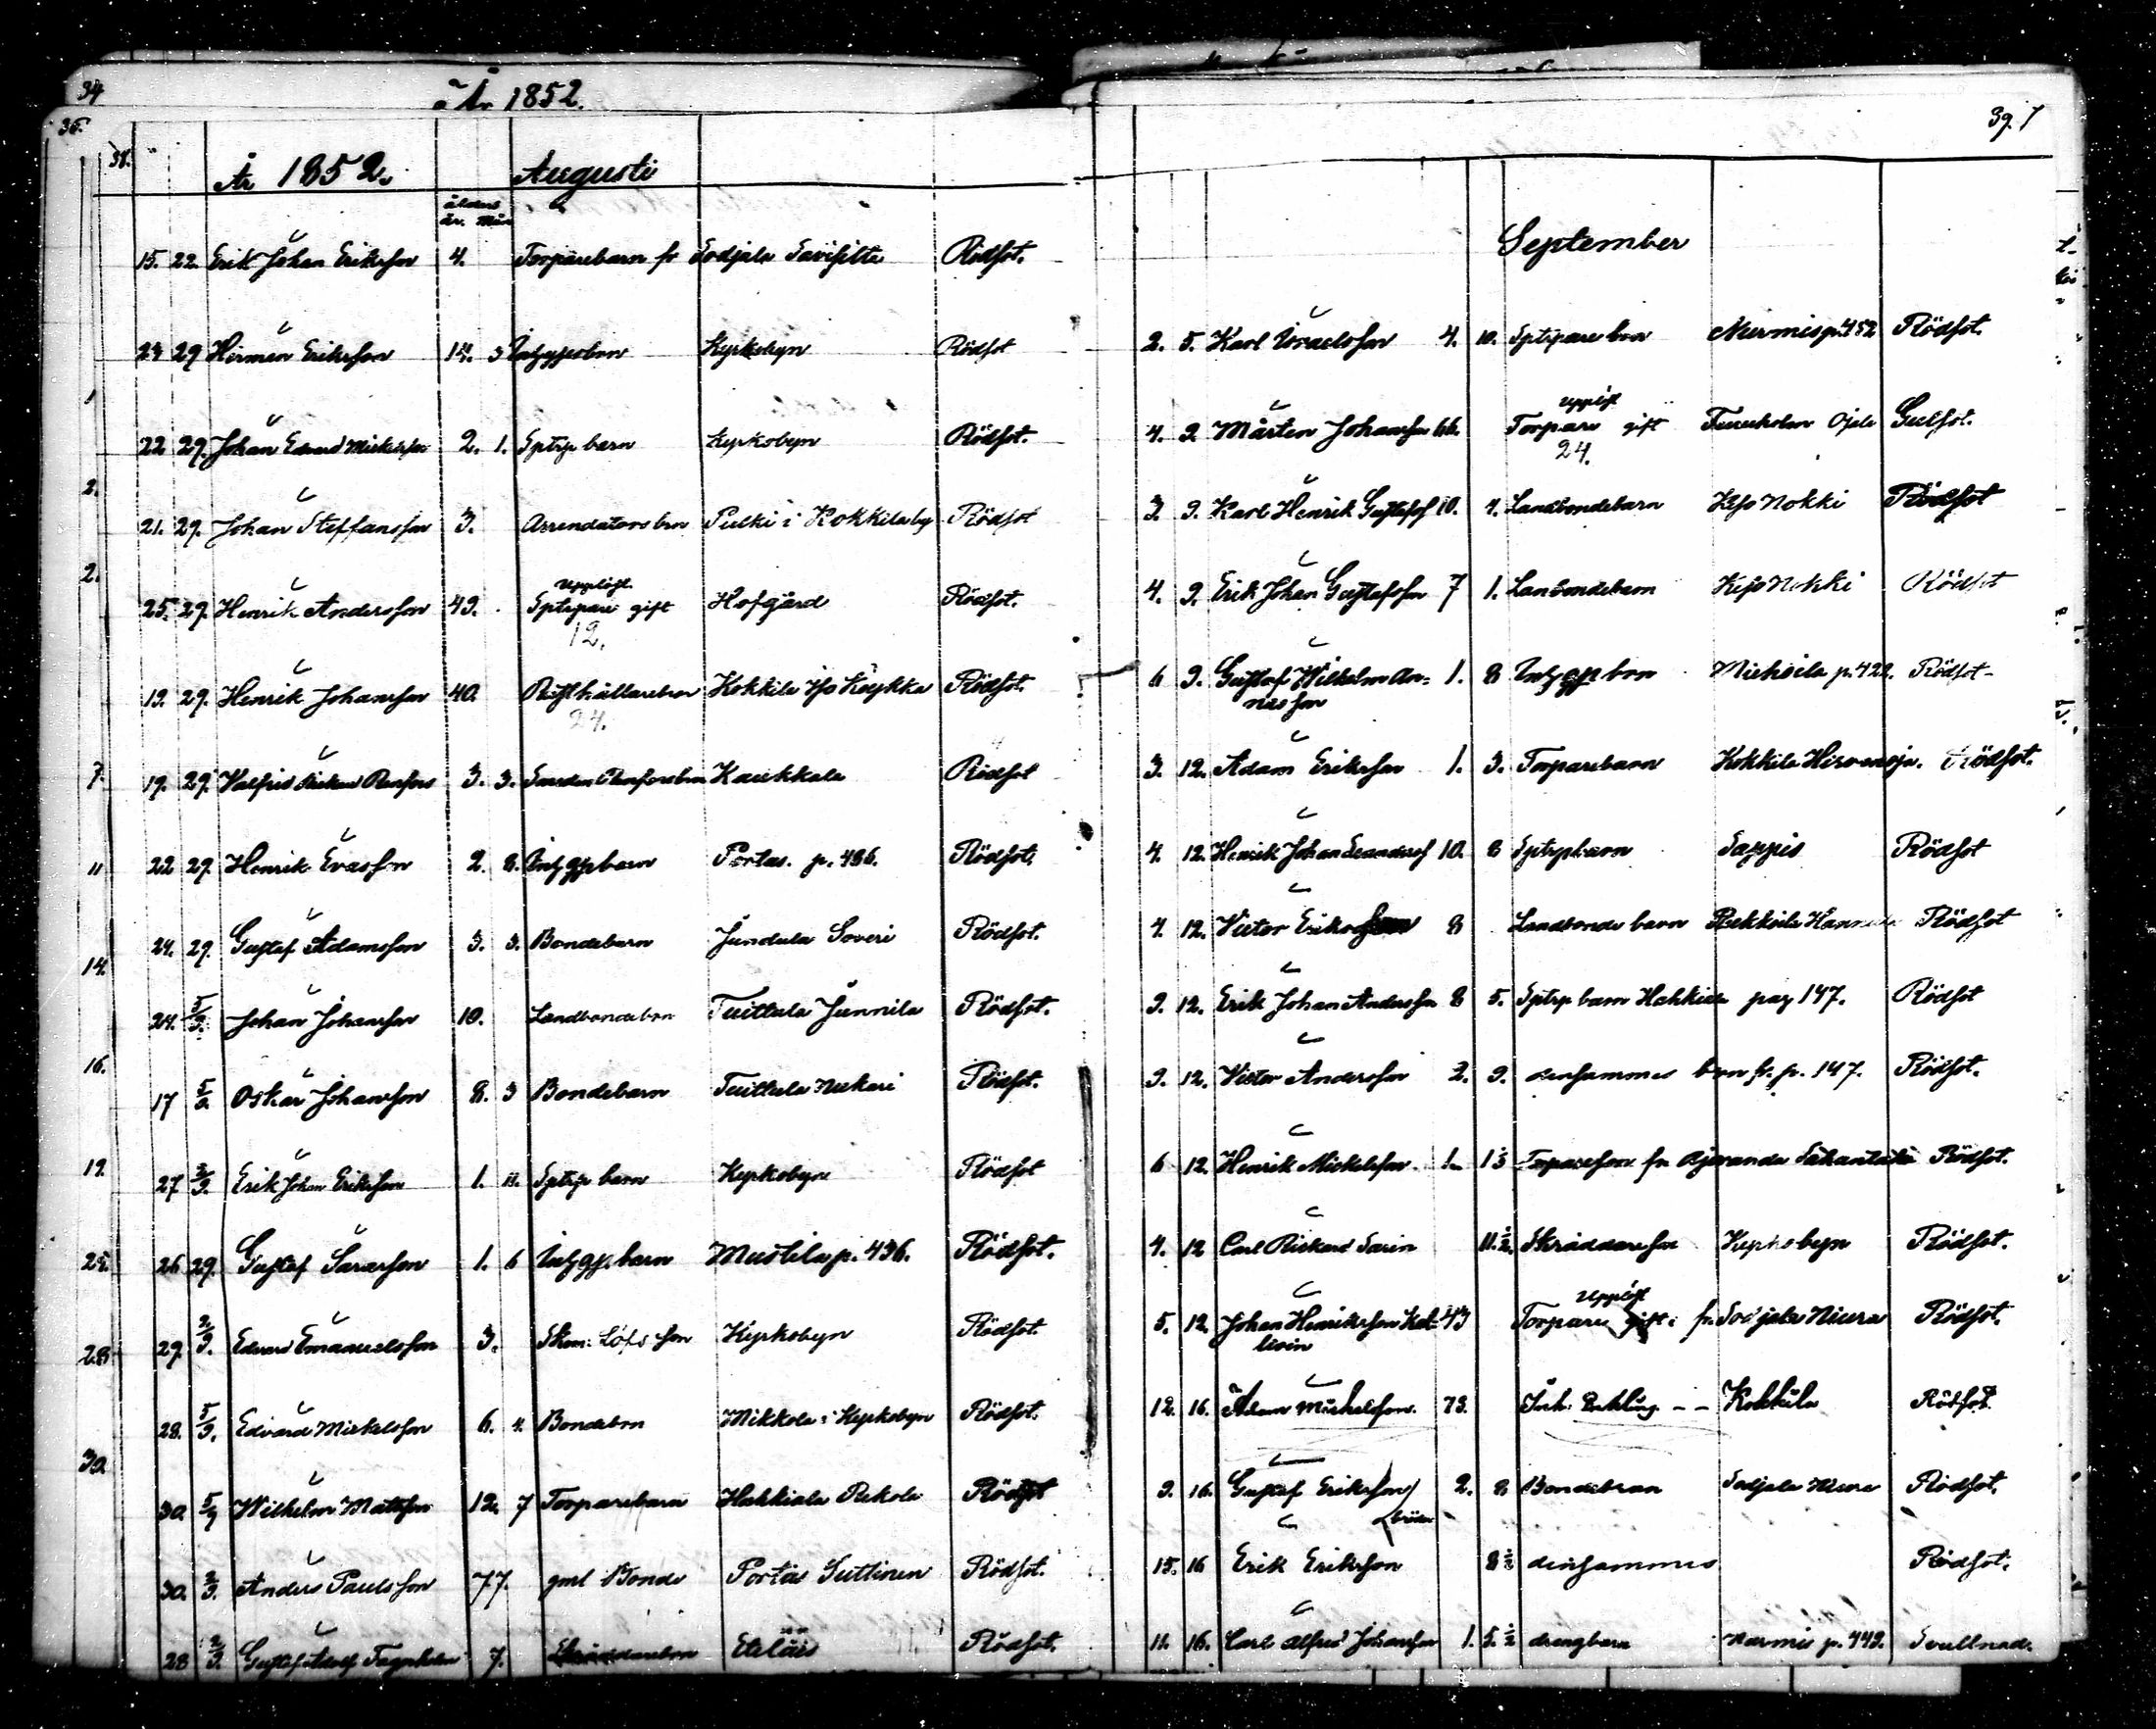 34
År 1852.
36.
38.
År 1852. Augusti
ålder
år. mån
15. 22. Erik Johan Eriksson 4. Torparebarn fr Sodjala Savisilta Rödsot.
24 29 Herman Eriksson 14. 3 Inhysesbrn Kyrkobyn Rödsot
22 29. Johan Edvard Mickelsson 2. 1. Sptrp barn Kyrkobyn Rödsot.
21. 29. Johan Steffansson 3. Arrendators brn Pulki i Kokkila by Rödsot
upplöst
25. 29. Henrik Andersson 49. Sptrpare gift Hofgård Rödsot.
12.
19. 29. Henrik Johansson 40. Rusthållarebror Kokkila Köykkä Rödsot.
24.
19. 29. Valfrid Renfors 3. 3. Kaukkala Rödsot
22 29. Henrik Evasson 2. 8. Inhysp barn Portas. p. 486. Rödsot.
24. 29. Gustaf Adamsson 3. 3. Bondebarn Jundula Soveri Rödsot.
24. 5/9. Johan Johansson 10. Landbondebrn Tuittula Junnila Rödsot.
17 5/9. Oskar Johansson 8. 3 Bondebarn Tuittula Nukari Rödsot.
27 2/9. Erik Johan Eriksson 1. 11. Sptrp barn Kyrkobyn Rödsot
26 29. Gustaf Sarasson 1. 6 Inhysp. barn Mustila p. 436. Rödsot.
29. 2/9. Edvard Emanuelsson 3. Skom: Löfs son Kyrkobyn Rödsot.
28. 5/9. Edvard Mickelsson 6. 4. Bondebrn Mikkola i Kyrkobyn Rödsot.
30. 5/9 Wilhelm Mattsson 12. 7 Torparebarn Hakkiala Pekola Rödsot
30. 2/9. Anders Paulsson 77. gml Bonde Portas Suttinen Rödsot.
28 2/9. Gustaf Adolf Fagerholm 7. Skräddarebrn Eteläis Rödsot.
1
2.
2.
7.
11
14.
16.
19.
25.
28
30
39.
September
2. 5. Karl Israelsson 4. 10. Sptrpare brn Nurmis p. 452 Rödsot.
upplöst
4. 9. Mårten Johansson 66. Torpare gift Furuholm Ojala Gulsot.
24.
3. 9. Karl Henrik Gustafss 10. 4. Landbondebarn Nokki Rödsot
4. 9. Erik Johan Gustafsson 7 1. Lanbondebarn Nokki Rödsot
6 9. Gustaf Wilhelm An-
nasson 1. 8 Inhysp brn Mickoila p. 422. Rödsot
3. 12. Adam Eriksson 1. 9. Torparebarn Kokkila Hirvenoja. Rödsot.
4. 12. Henrik Johan Leandersf 10. 8 Sptrpbarn Sappis Rödsot
4. 12. Victor Eriksson 8 Landbonde barn Rödsot
9. 12. Erik Johan Andersson 8 5. Sptrp barn Hahkiala pag 147. Rödsot
9. 12. Victor Andersson 2. 9. densammes barn fr. p. 147. Rödsot.
6 12. Henrik Mickelsson 1. Torpareson fr Ajoranda Rödsot.
4. 12 Carl Rickard Sarin 11. 1/2. Skräddareson Kyrkobyn Rödsot.
upplöst
5. 12. Johan Henriksson Kal-
livin 43 Torpare gift fr. Sodjala Niura Rödsot.
12. 16. Adam Mickelsson. 73. Inh: Enkling -- Kokkila Rödsot.
9. 16. Gustaf Eriksson 2. 8 Bondebran Sodjala Rödsot.
bröder
15. 16 Erik Eriksson 8 1/2 densammes Rödsot.
11. 16. Carl Alfred Johansson 1. 5. 1/2 drengbarn Nurmis p. 449. Svullnad.